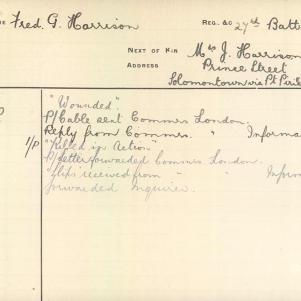 Fred. G. Harrison REG. &C 27th Batt
NEXT OF KIN Mrs J. Harrison
ADDRESS Prince Street
Solomontown via Pt Pirie
"Wounded".
P/Cable sent Commrs London.
Reply from Commrs. " Informa
1/P "Killed in Action"
P/letter forwarded Commrs London.
received from " " Infor
forwarded inquirer.